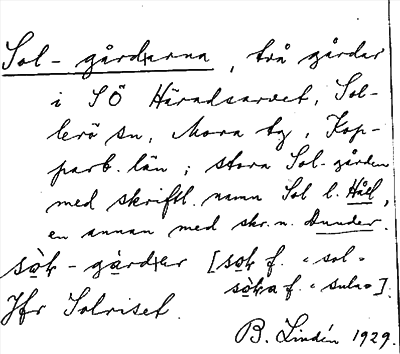 Sol-gårdarna, två gårdar
i SÖ Häradsarvet, Sol-
lerö sn, Mora tg, Kop-
parb. län; stora Sol-gården
med skriftl. namn Sol l. Håll,
en annan med skr.n. Dunder.
sòk-gàrdær [sok f. "sol"
sòka f. "sula"].
Jfr Solriset.
B. Lindén 1929.